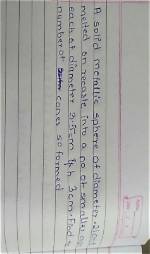 A solid metallic sphere of diameter 21cm
melted an recaste into a no of smaller co
each of diameter 3.5cm & h 3cm. Find the
number of cones so formed